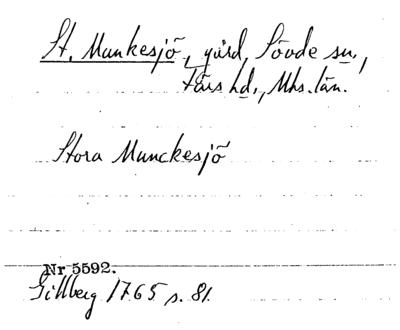 St. Munkesjö, gård, Sövde sn.,
Färs hd., Mhs. län.
Stora Munckesjö
Nr 5592.
Gillberg 1765 s. 81.